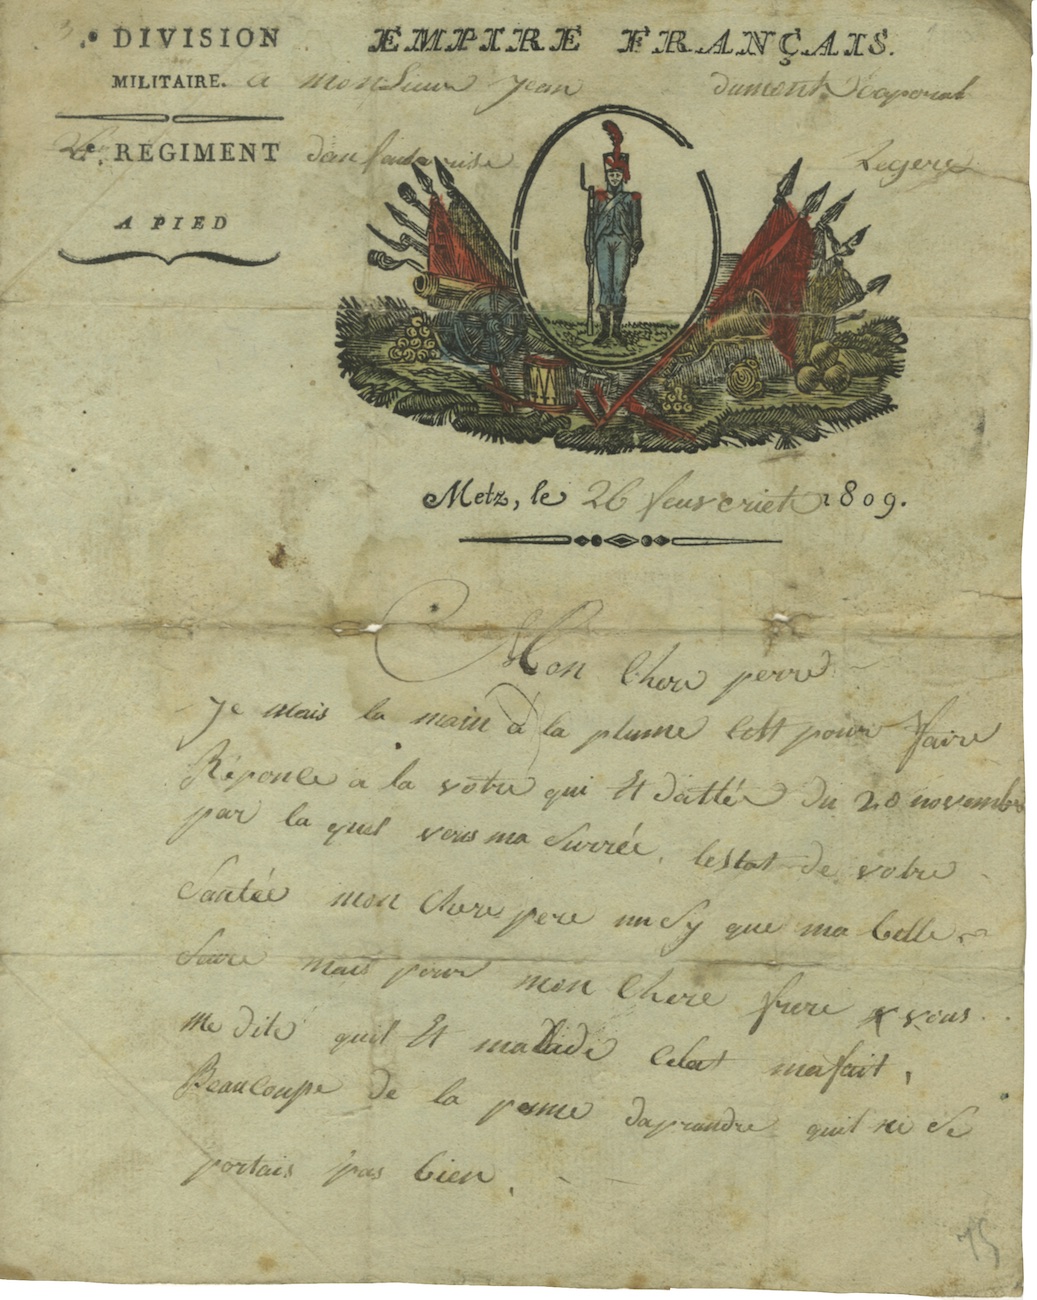 3.e DIVISION EMPIRE FRANÇAIS.
MILITAIRE. a monsieur jean dumont Caporal
2e. REGIMENT danfanterise Legere
A PIED
Metz, le 26 feuvcriet 1809.
Mon Chere perre
Je mais la main à la plume Cest pour faire
Réponce a la votre qui Et dattée du 20 novembre
par la quel vous ma Surrée, lestat de votre
Santée mon Chere pere un Sy que ma belle
Soure mais pour mon Chere frere vous
me dite quil Et mallade Celat ma fait,
Beaucoupe de la penne daprandre quil ne Se
portais pas bien.
75